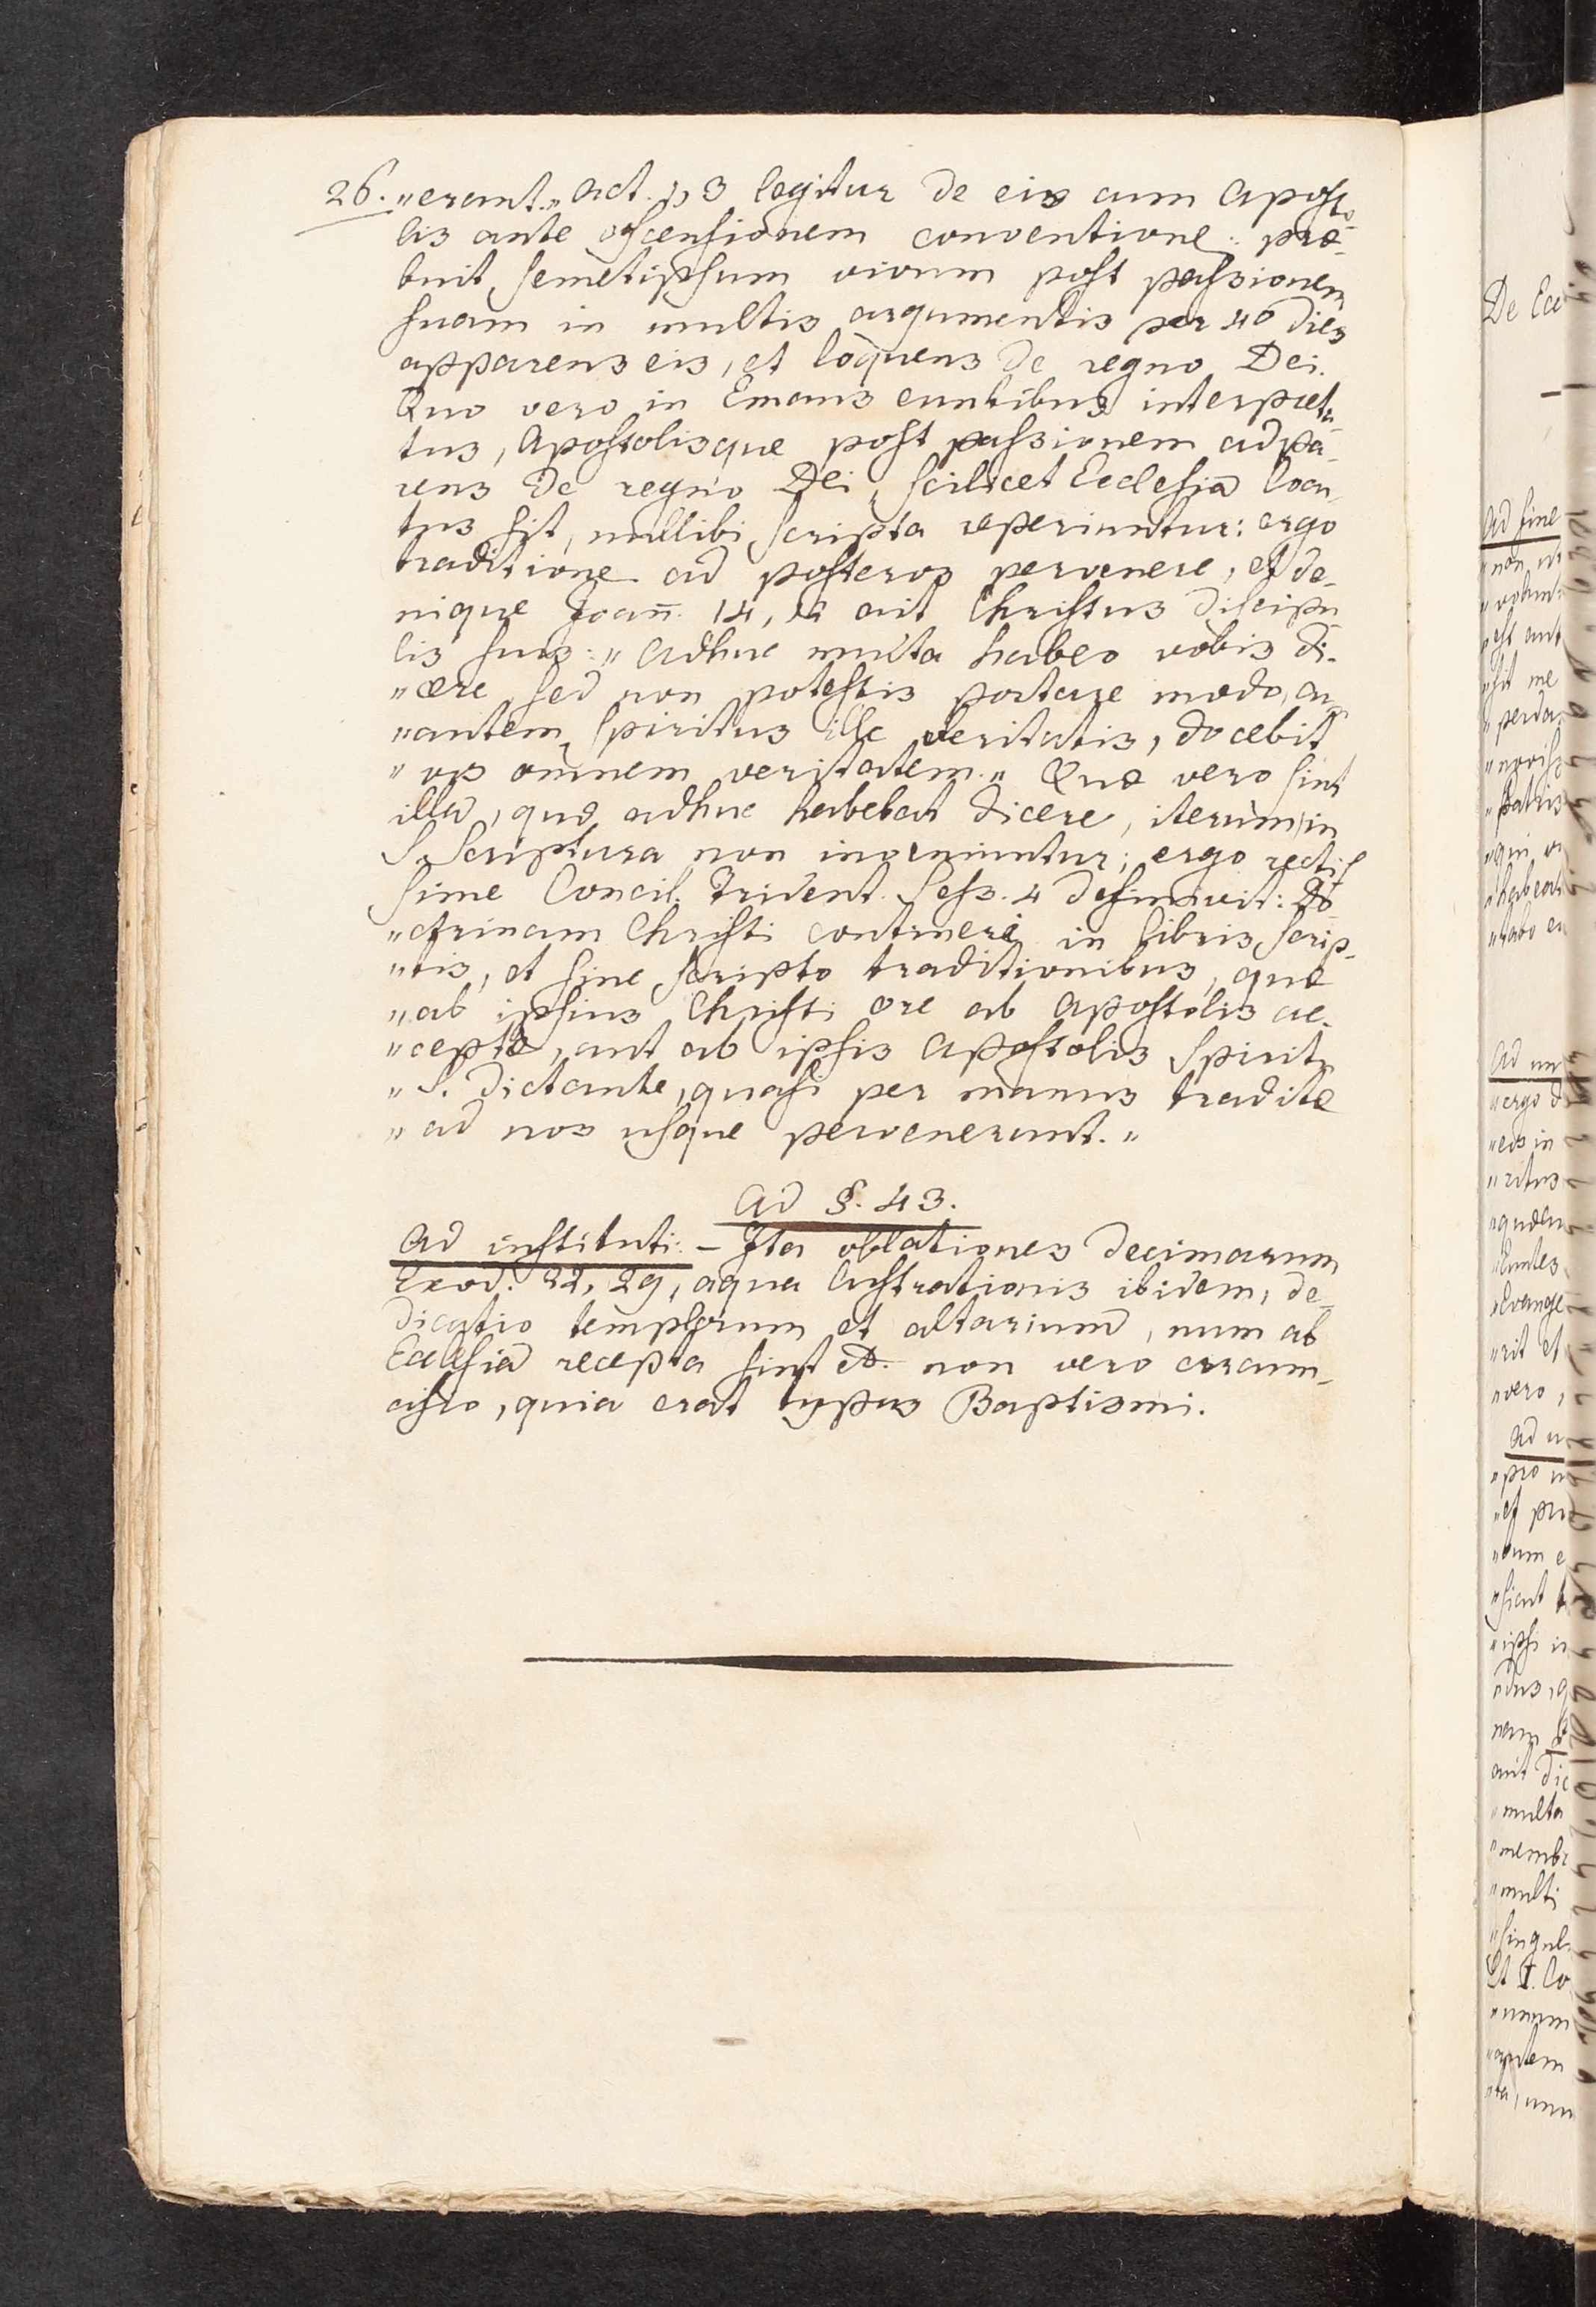 26. „erant.„ Act. 1, 3 legitur de eis cum Aposto-
lis ante ascensionem conventione: præ-
buit semetipsum vivum post passionem
suam in multis argumentis per 40 dies
apparens eis, et loquens de regno Dei.
Quo vero in Emaus euntibus interpreta-
tus, Apostolisque post passionem adpa-
rens de regno Dei, scilicet Ecclesia locu-
tus sit, nullibi scripta reperiuntur: ergo
traditione ad posteros pervenere, et de-
nique Joan̄. 14, ait Christus discipu-
lis suis: „Adhuc multa habeo vobis di-
„cere sed non potestis portare modo, cu
„autem Spiritus ille veritatis, docebit
„vos omnem veritatem.„ Quæ vero sint
illa, quæ adhuc habebat dicere, iterum in
S. Scriptura non inveniuntur; ergo rectis
sime Concil. Trident. Sess. 4 definivit: Do-
„ctrinam Christi contineri in libris scrip-
„tis, et sine scripto traditionibus, quæ
„ab ipsius Christi ore ab Apostolis ac-
„ceptæ, aut ab ipsis Apostolis Spiritu
„S. dictante, quasi per manus traditæ
„ad nos usque pervenerunt.„
Ad §. 43.
Ad instituti. – Ita oblationes decimarum
Exod. 22, 29, aqua lustrationis ibidem, de-
dicatio templorum et altarium, num ab
Ecclesia recepta sint et. non vero circum-
cisio, quia erat typus Baptismi.
De Ecc
Ad fine